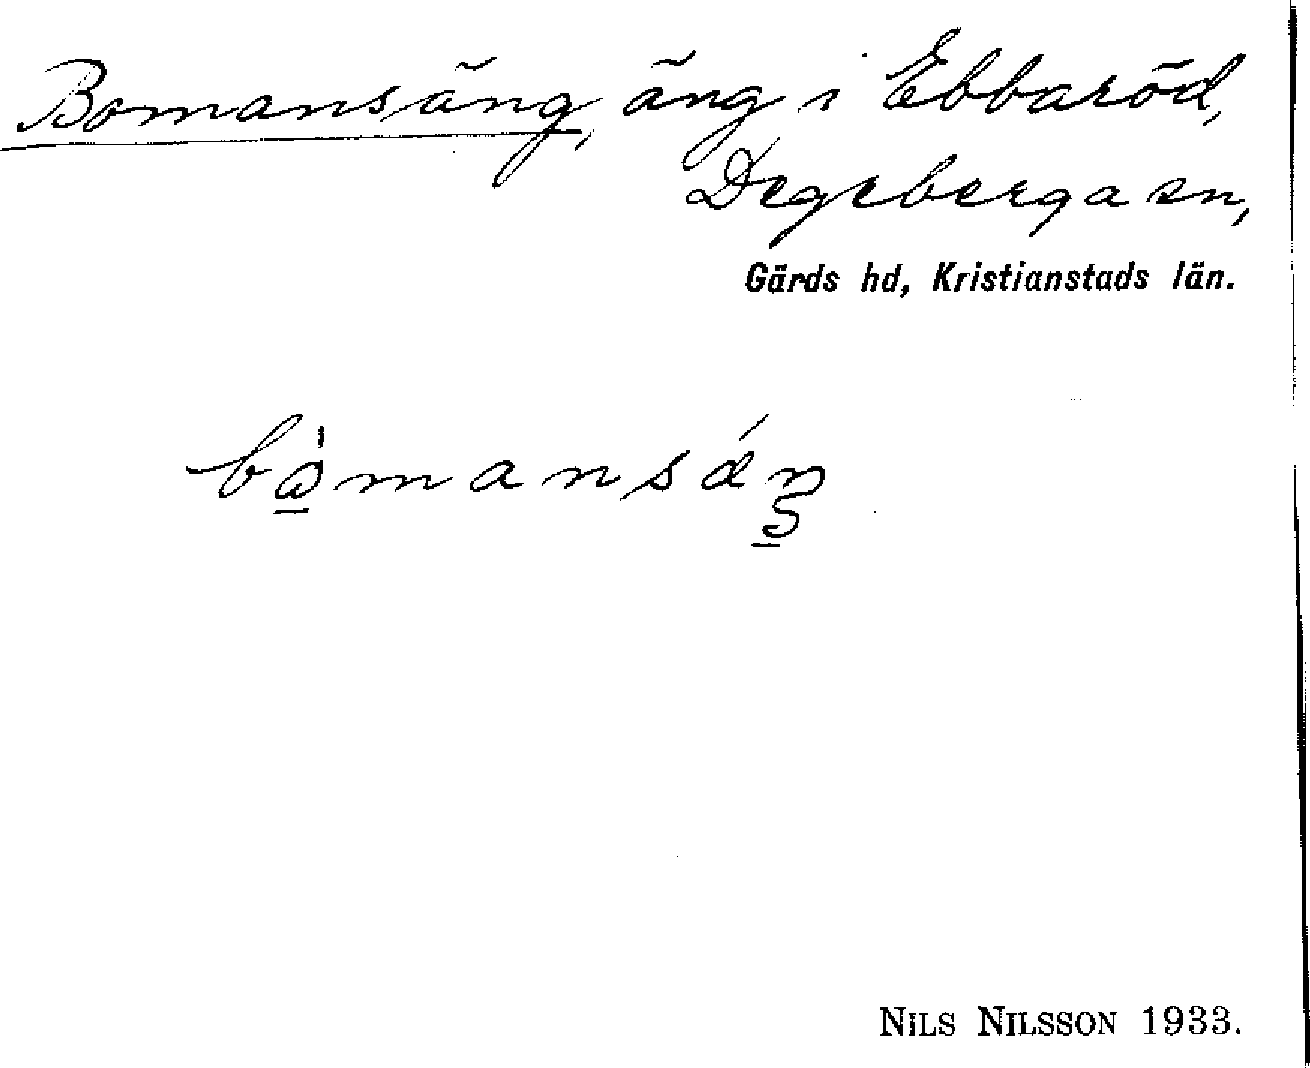 Bomansäng, äng i Ebbaröd,
Degeberga sn,
Gärds hd, Kristianstads län.
NILS NILSSON 1933.